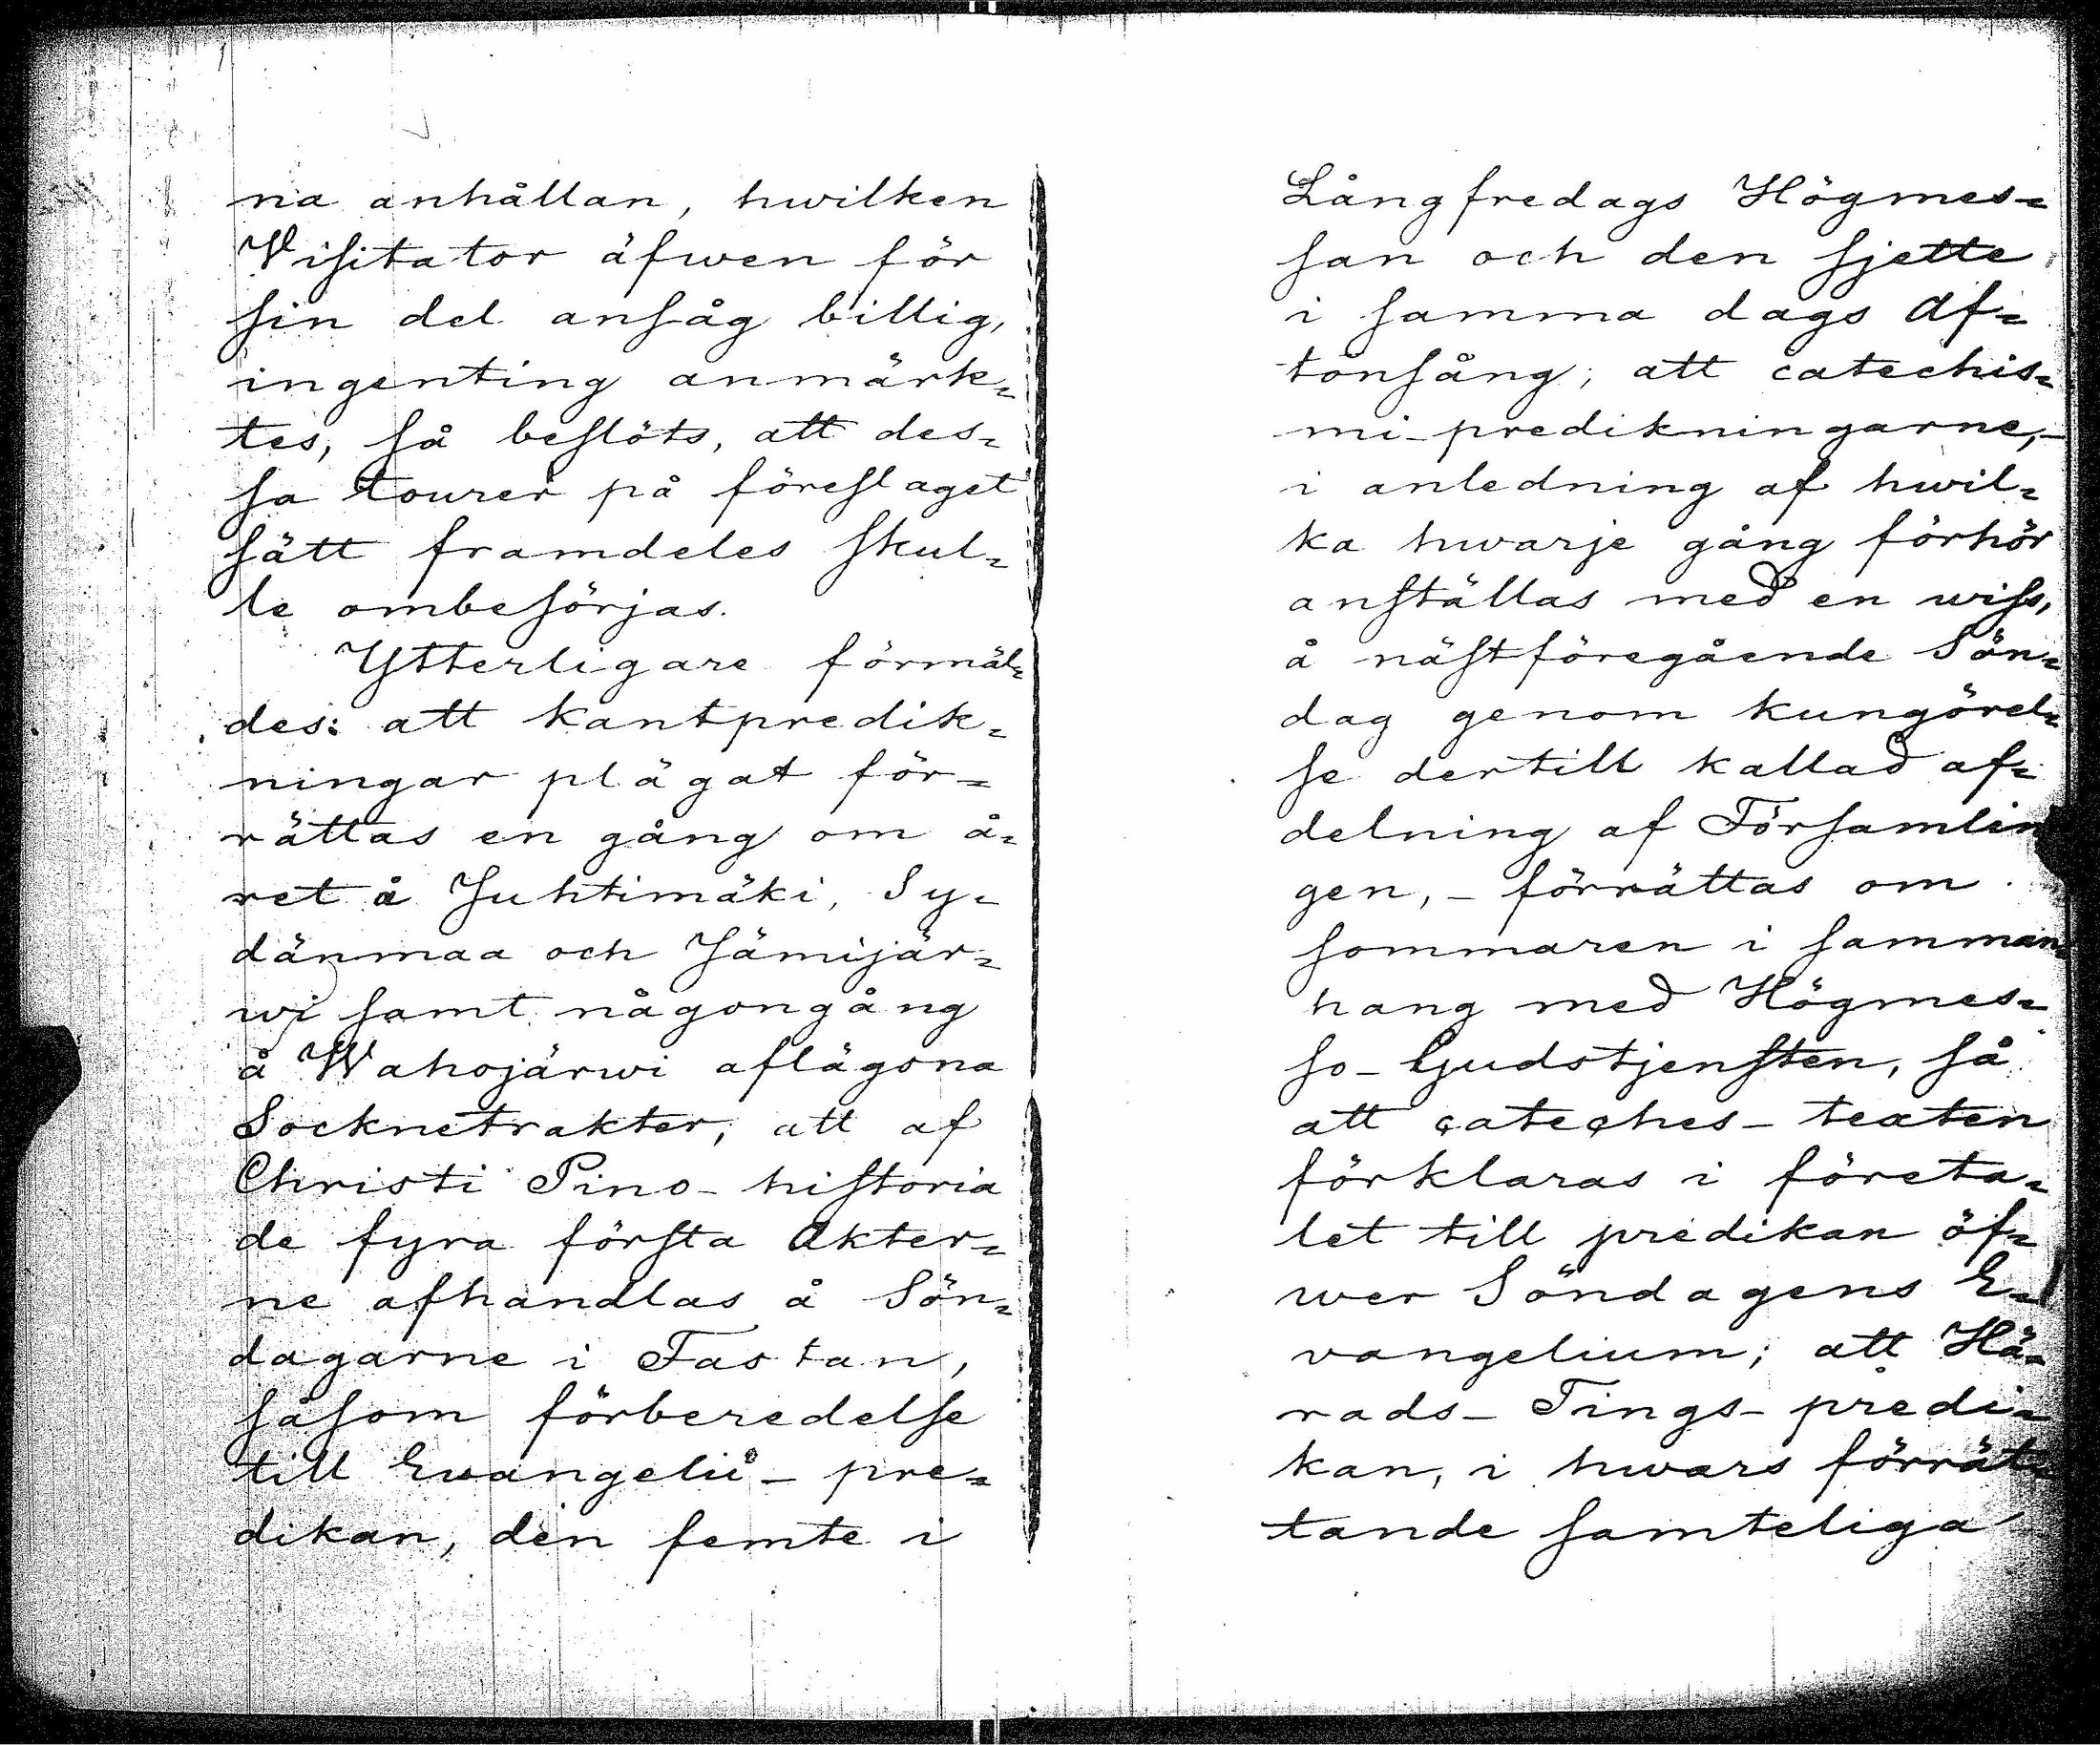 na anhållan, hwilken
Visitator äfwen för
sin del ansåg billig,
ingenting anmärk-
tes, så beslöts, att des-
sa tourer på föreslaget
sätt framdeles skul-
le ombesörjas.
Ytterligare förmäl-
des: att kantpredik-
ningar plägat för-
rättas en gång om å-
ret å Juhtimäki, Sy-
dänmaa och Jämijär-
wi samt någongång
å Wahojärwi aflägsna
Socknetrakter; att af
Christi Pino-historia
de fyra första Akter-
ne afhandlas å Sön-
dagarne i Fastan,
såsom förberedelse
till Evangelii-pre-
dikan, den femte i
Långfredags Högmes-
san och den sjette
i samma dags Af-
tonsång; att catechis-
mi-predikningarne,-
i anledning af hwil-
ka hwarje gång förhör
anställas med en wiss,
å nästföregående Sön-
dag genom kungörel-
se dertill kallad af-
delning af Församlin
gen,- förrättas om
sommaren i samman-
hang med Högmes-
so-Gudstjensten, så
att cateches-texten
förklaras i företa-
let till predikan öf-
wer Söndagens E-
vangelium; att Hä-
rads-Tings-predi-
kan, i hwars förrät-
tande samteliga